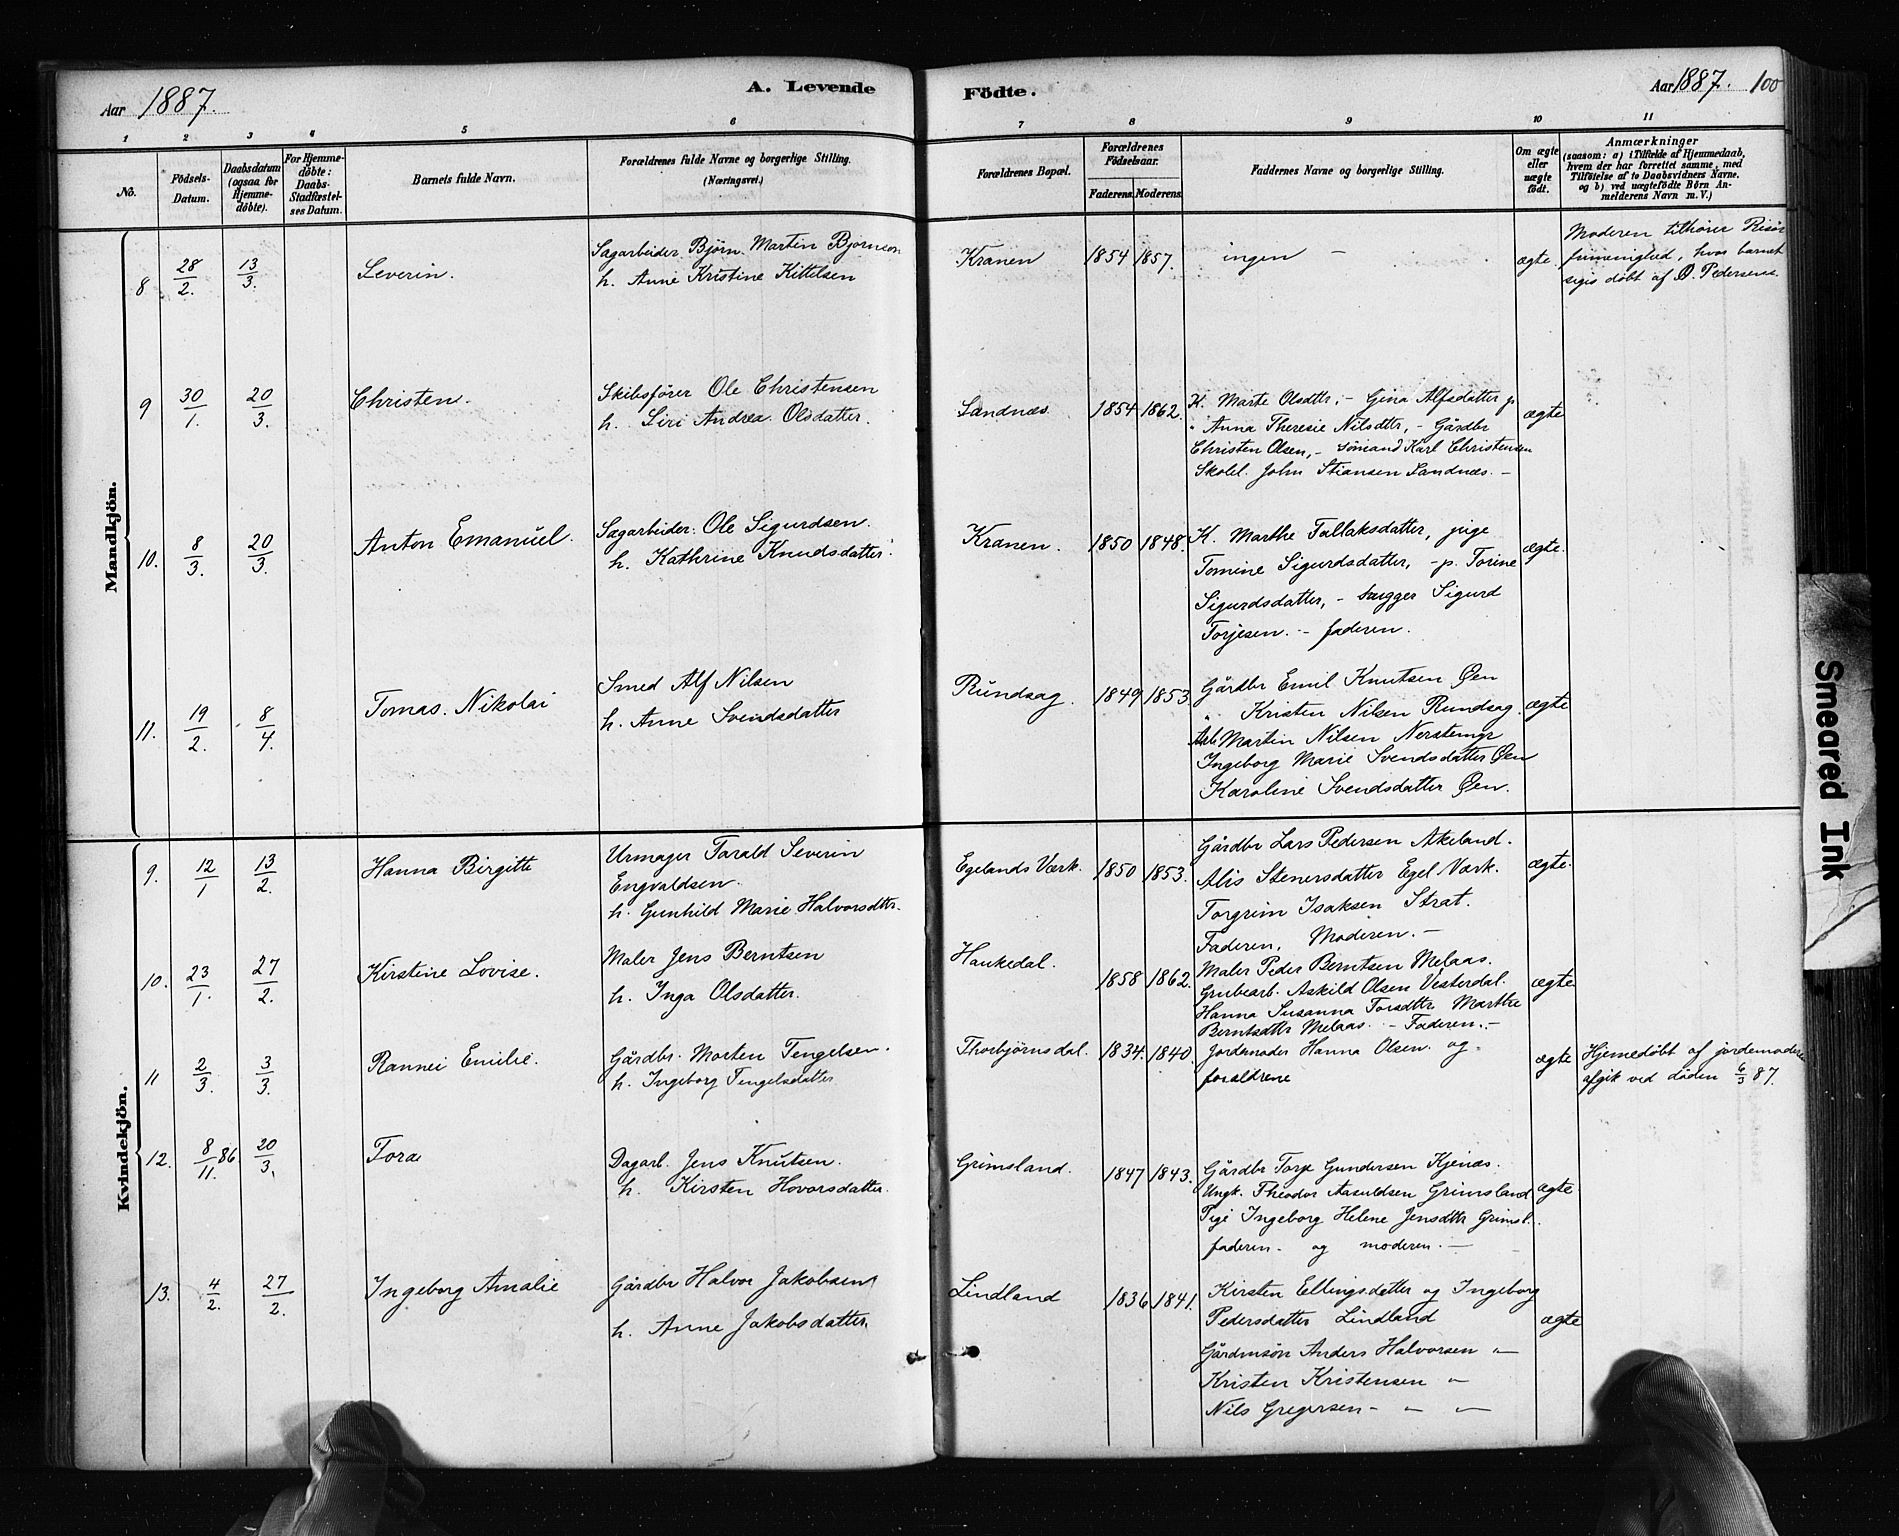 Aar 1887.
A. Levende
Födte.
Aar 1887. 100
1 2 3 4 5 6 7 8 9 10 11
No.
Födsels-Datum.
Daabsdatum (ogsaa for Hjemme-döbte).
For Hjemme-döbte: Daabs-Stadfæstel-ses Datum.
Barnets fulde Navn.
Forældrenes fulde Navne og borgerlige Stilling.
(Næringsvei.)
Forældrenes Bopæl.
Forældrenes Födselsaar.
Faderens. Moderens.
Faddernes Navne og borgerlige Stilling.
Om ægte eller uægte födt.
Anmærkninger
(saasom: a) i Tilfælde af Hjemmedaab,
hvem der har forrettet samme, med
Tilföielse af to Daabsvidners Navne.
og b) ved uægtefödte Börn An-
melderens Navn m. V.)
Mandkjön.
8 28/2. 13/3. Severin.
Sagarbeider Bjørn Martin Bjørnsen
h. Anne Kristine Kittelsen
Kranen 1854 1857. ingen — ægte.
Moderen tilhører Risør
frimenighed, hvor barnet
siges døbt af O. Pedersen.
9 30/1. 20/3. Christen.
Skibsfører Ole Christensen
h. Siri Andrea Olsdatter.
Sandnæs. 1854 1862.
K. Marte Olsdtr, - Gina Alfsdatter p.
" Anna Theresie Nilsdtr, - Gårdbr
Christen Olsen, - sømand Karl Christensen
Skolel. John Stiansen Sandnæs. -
ægte
10. 8/3. 20/3. Anton Emanuel.
Sagarbeider. Ole Sigurdsen.
h. Kathrine Knudsdatter.
Kranen. 1850 1848.
K. Marthe Tallaksdatter, pige
Tomine Sigurdsdatter, - p. Torine
Sigurdsdatter, - Sigurd
Torjesen. - faderen.
ægte.
11. 19/2. 8/4. Tomas. Nikolai
Smed Alf Nilsen
h. Anne Svendsdatter
Rundsag. 1849. 1853
Gårdbr Emil Knutsen Øen
" Kristen Nilsen Rundsag.
Arb. Martin Nilsen Nerstemyr
Ingeborg Marie Svendsdatter Øen
Karoline Svendsdatter Øen.
ægte
Kvindekjön.
9. 12/1 13/2. Hanna Birgitte
Urmager Tarald Severin
Engvaldsen.
h. Gunhild Marie Halvorsdtr.
Egelands Værk. 1850 1853.
Gårdbr Lars Pedersen Akeland.
Alis Stenersdatter Egel Værk.
Torgrim Isaksen Strat.
Faderen, Moderen. -
ægte.
10. 23/1. 27/2. Kirstine Lovise.
Maler Jens Berntsen
h. Inga Olsdatter.
Haukedal. 1858 1862.
Maler Peder Berntsen Melaas.
Grubearb. Askild Olsen Vesterdal.
Hanna Susanna Torsdttr Marthe
Berntsdttr Melaas. - Faderen. -
ægte
11 2/3. 3/3. Rannei Emilie.
Gårdbr. Morten Tengelsen.
h. Ingeborg Tengelsdatter
Thorbjørnsdal. 1834. 1840.
Jordemoder Hanna Olsen. og
forældrene
ægte
Hjemedøbt af jordemoder
afgik ved døden 6/3 87.
12. 8/11. 86 20/3. Tora
Dagarb. Jens Knutsen.
h. Kirsten Hovorsdatter.
Grimsland. 1847 1843.
Gårdbr Torje Gundersen Kjenæs.
Ungk. Theodor Aasuldsen Grimsland
Pige Ingeborg Helene Jensdtr Grimsl.
faderen. og moderen. —
ægte
13. 4/2. 27/2. Ingeborg Amalie
Gårdbr Halvor Jakobsen
h. Anne Jakobsdatter.
Lindland 1836 1841.
Kirsten Ellingsdatter og Ingeborg
Pedersdatter Lindland
Gårdmsøn Anders Halvorsen "
Kristen Kristensen "
Nils Gregersen - " "
ægte
Smeared Ink